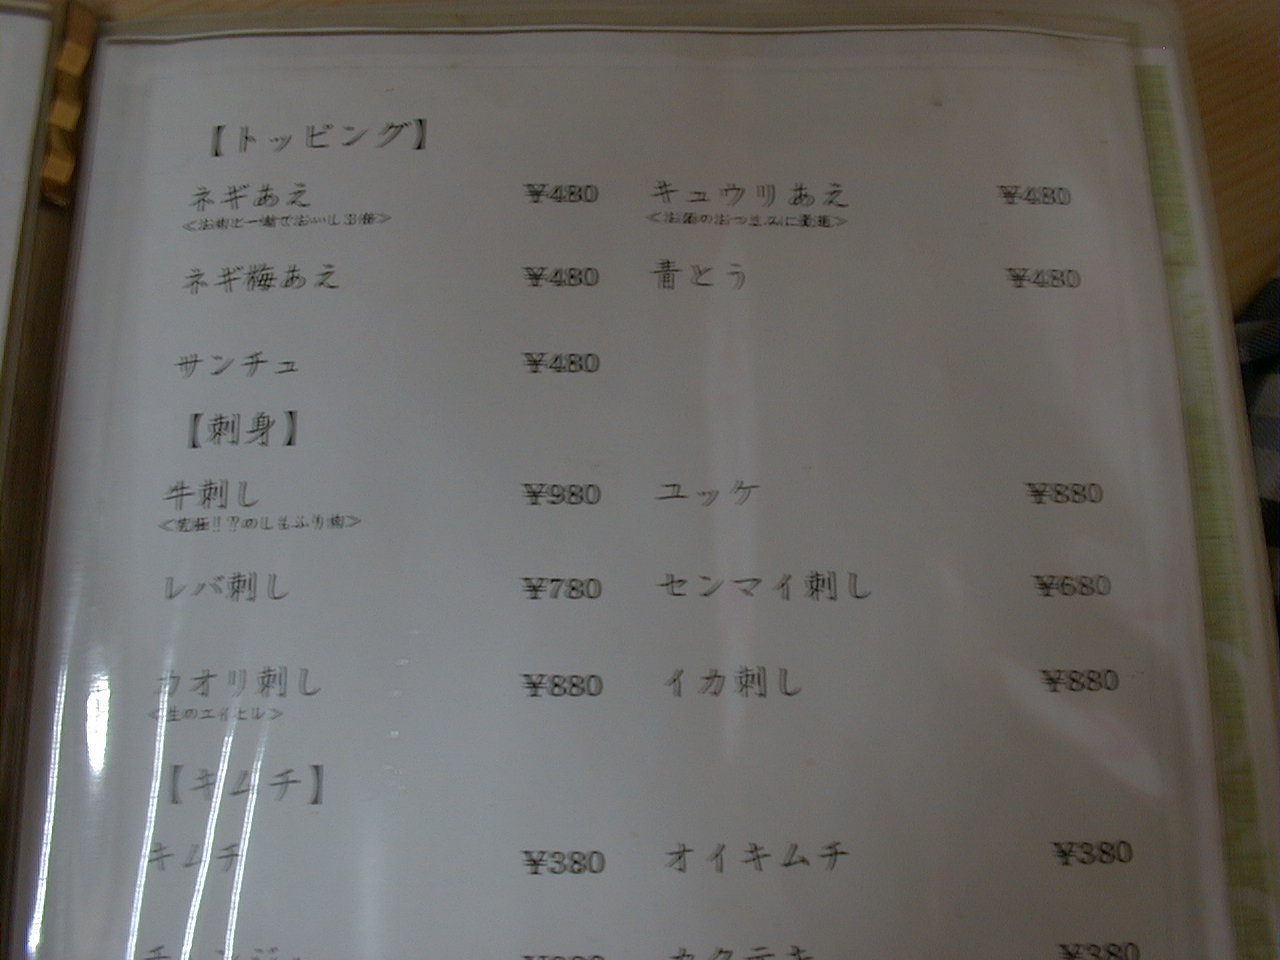 【トッピング】
ネギあえ ¥480 キュウリあえ ¥480
<お肉と一緒でおいしさ倍> <お酒のおつまみに最適>
ネギ梅あえ ¥480 青とう ¥480
サンチュ ¥480
【刺身】
牛刺し ¥980 ユッケ ¥880
<究極!!?のしもふり肉>
レバ刺し ¥780 センマイ刺し ¥680
カオリ刺し ¥880 イカ刺し ¥880
<生のエイヒレ>
【キムチ】
キムチ ¥380 オイキムチ ¥380
カクテキ ¥380